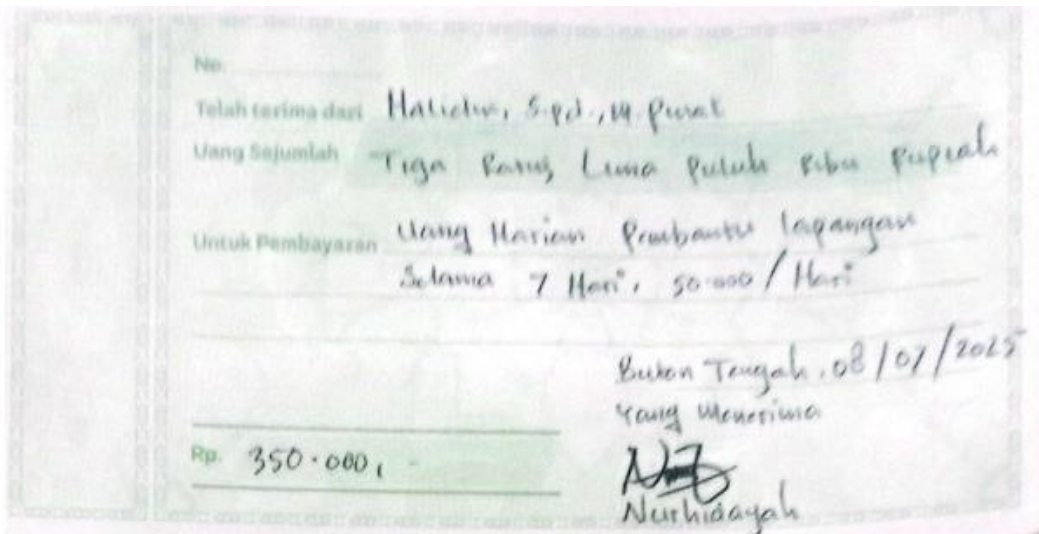 No.
Telah terima dari Halidin, S.pd., M.
Uang Sejumlah Tiga Ratus Lima Puluh Ribu Rupiah
Untuk Pembayaran Uang Harian Pembantu lapangan
Selama 7 Hari, 50.000 / Hari
Buton Tengah, 08/07/2025
Yang Menerima
Rp. 350.000,-
Nurhidayah